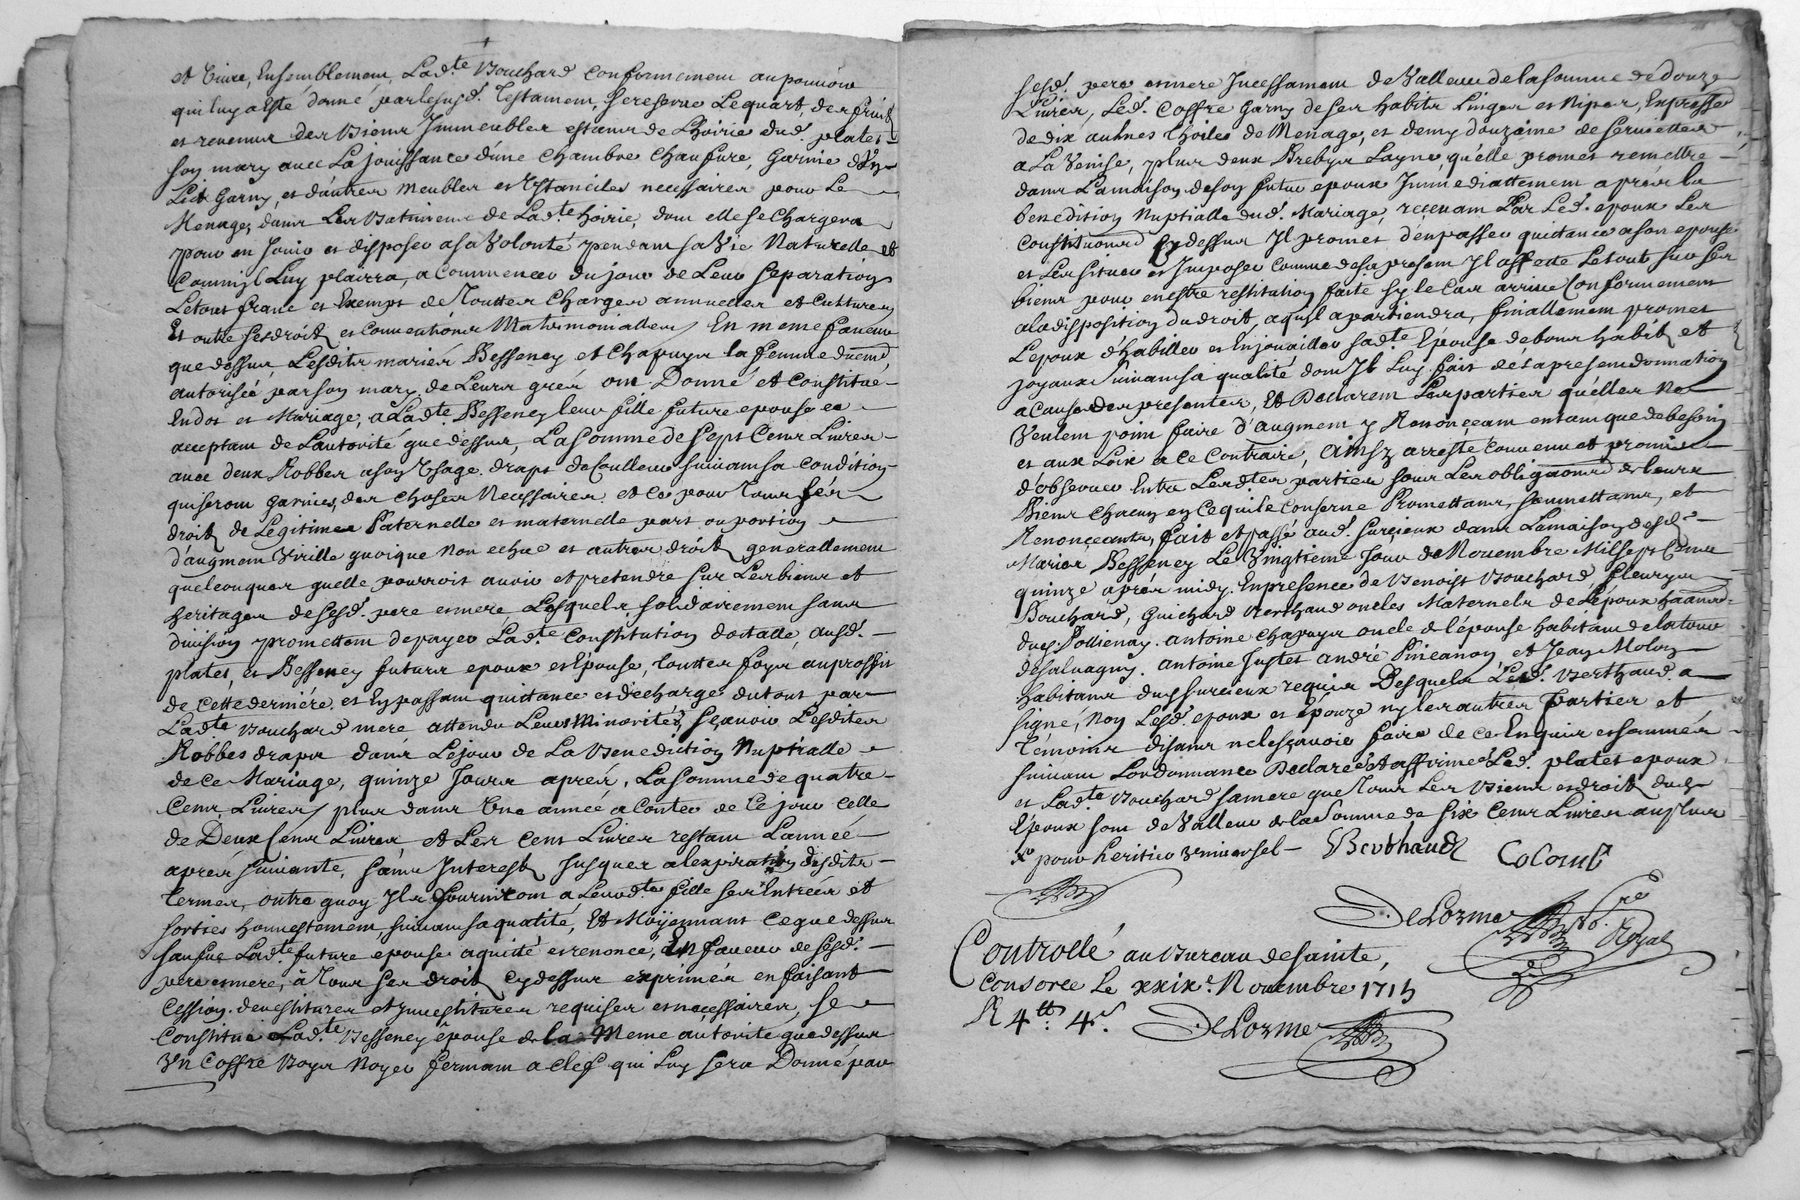 et vivre, Ensemblement, Lad.te Bouchard conformement au pouvoir
qui luy a esté donné par lesusd. Testament, se reserve Le quart, des fruits
et revenus des Biens Immeubles estans de L'hoirie dud. plates
son mary avec La jouissance d'une Chambre Chaufure, Garnie d'Un
Lict Garny, et d'autres Meubles et Ustanciles necessaires pour Le
Menage, dans Les Batimens de Lad.te hoirie, dont elle se Chargera
pour en Jouir et disposer a sa Volonté pendant sa Vie Naturelle et
Comm'il Luy plairra, a Commencer du jour de Leur Separation
Le tout franc et Exempt de Touttes Charges annuelles et Cultures
Et outre ses droits et Conventions Matrimonialles, En meme faveur
que dessus, Lesdits mariés Besseney et Chapuys la femme duëmt
autorisée par son mary de Leurs grés ont Donné et Constitué
En dot et Mariage, a Lad.te Besseney leur fille future epouse ce
acceptant de L'autorité que dessus, La somme de sept Cens Livres
avec deux Robbes a son Usage draps de Coulleur suivant sa Condition
qui seront garnies des choses Necessaires et ce pour Tous ses
droits de Legitimes Paternelle et maternelle part ou portion
d'augment Virille quoique Non echue et autres droits generallement
quelconques quelle pourroit avoir et pretendre sur Les biens et
heritages de sesd. pere et mere Lesquels solidairement sans
division promettent de payer Lad.te Constitution dottalle, ausd.
plates, et Besseney futurs epoux et Epouse, touttes foys au proffit
de cette derniére et En passant quittance et décharge du tout par
Lad.te Bouchard mere attendu Leurs Minorités, Sçavoir Lesdites
Robbes draps dans Le jour de La Benediction Nuptialle
de Ce Mariage, quinze Jours aprés, La somme de quatre
Cens Livres, plus dans Une année a Conter de Ce jour Celle
de Deux Cens Livres et Les Cent Livres restant L'année
aprés suivante, sans Interests Jusques a l'expiration desdits
Termes, outre quoy Ils fourniront a Leurd.te fille ses Entrées et
sorties honnestement, suivant sa qualité, Et Moÿennant Ce que dessus
sausus Lad.te future epouse a quitté et renoncé, En faveur de sesd.
pere et mere, à Tous ses droits Cy dessus exprimés en faisant
Cession devestitures et Investitures requises et necessaires, se
Constitue Lad.te Besseney épouse de la Meme autorité que dessus
Un Coffre Boys Noyer fermant a Clef qui Luy sera Donné par
sesd. pere et mere Incessament de Valleur de la somme de douze
Livres, Led. Coffre Garny de ses habits Linges et Nipes, Expresse
de dix aulnes thoiles de Menage, et demy douzaine de serviettes
a La Venise, plus deux Brebys Layne, qu'elle promet remettre
dans La maison de son futur epoux Immediattement aprés la
benediction Nuptialle dud. Mariage, recevant Par Led. epoux Les
Constitutions Cy dessus Il promet d'en passer quittance a son epouse
et Les situer et Imposer comme des a present Il affecte Le tout sur ses
biens pour en estre restitution faite sy le Cas arrive Conformement
a la disposition du droit, a qu'il apartiendra, finallement promet
L'epoux d'habiller et Enjouailler sad.te Epouse de bons habits et
joyaux suivant sa qualité dont Il Luy fait dés a present donnation
a Cause des presentes, Et Declarent Les parties qu'elles Ne
Veulent point faire d'augment y Renonçeant en tant que de besoin
et aux Loix a ce Contraire, Ainsy arresté Convenu et promis
d'observer Entre Lesd.tes parties sous Les obligaõns de leurs
Biens Chacun en Ce qui le Conserne Promettans, soumettans, et
Renonçeants, fait et passé aud. surcieux dans La maison desd.
Mariés Besseney Le Vingtieme Jour de Novembre Mil sept Cens
quinze aprés midy En presence de Benoist Bouchard, fleurys
Bouchard, Guichard Berthaud oncles Maternels de L'epoux
dud. Pollienay, antoine Chapuys oncle de l'épouse habitant de la tour
desalvagny, antoine Justet andré Pincanon, et Jean Molon
habitans dud. surcieux requis Desquels Led. Berthaud a
signé, Non Lesd. epoux et épouze ny les autres Parties et
Témoins disans ne le sçavoir faire de ce Enquis et sommés
suivant Lordonnance Declaré & affirmé Led. plates epoux
et Lad.te Bouchard sa mere que Tous Les Biens et droits dud.
Epoux sont de Valleur de la somme de six Cens Livres au plus
pour heritier Universel Berthaud Colomb
DeLorme No.re Royal
Controllé au Bureau de sainte
Consorce Le xxix.e Novembre 1715
R 4tt: 4s DeLorme